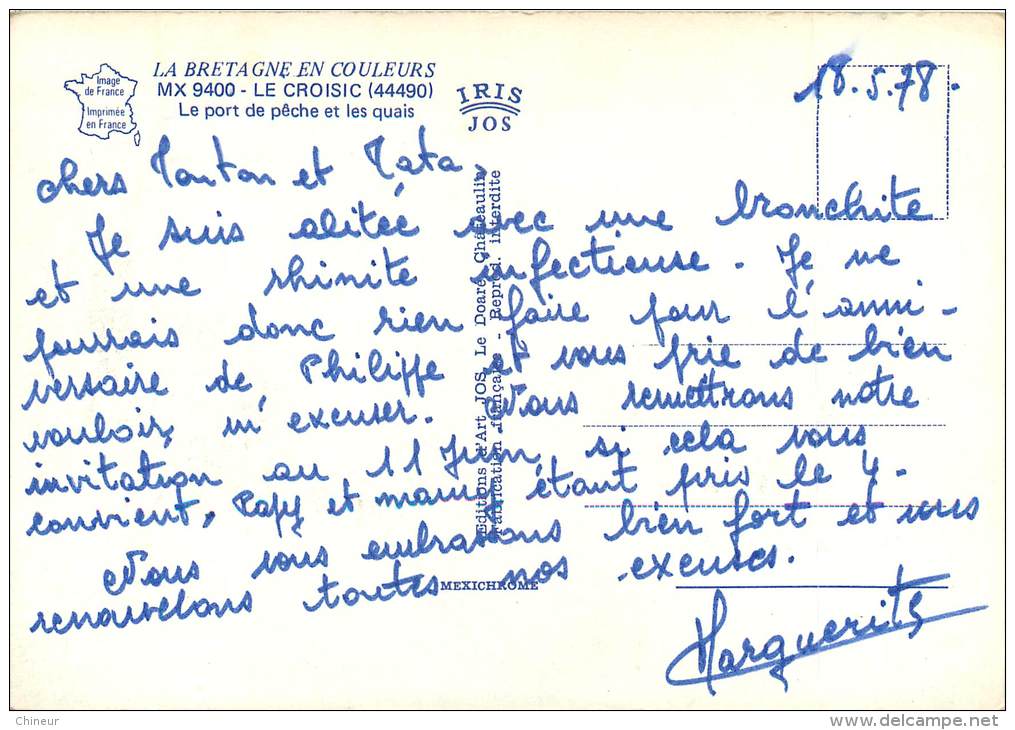 Image
de France
Imprimée
en France
LA BRETAGNE EN COULEURS
MX 9400 - LE CROISIC (44490)
Le port de pêche et les quais
IRIS
JOS
18.5.78.
chers Tonton et Tata,
Je suis alitée avec une bronchite
et une rhinite infectieuse. Je ne
pourrais donc rien faire pour l'anni-
versaire de Philippe et vous prie de bien
vouloir m'excuser. Nous remettrons notre
invitation au 11 Juin si cela vous
convient, Papy et mamy étant pris le 4.
Nous vous embrassons bien fort et vous
renouvelons toutes nos excuses.
Marguerite
Editions d'Art JOS Le Doaré, Châteaulin
Fabrication française - Reprod. interdite
MEXICHROME
Chineur
delcampe.net